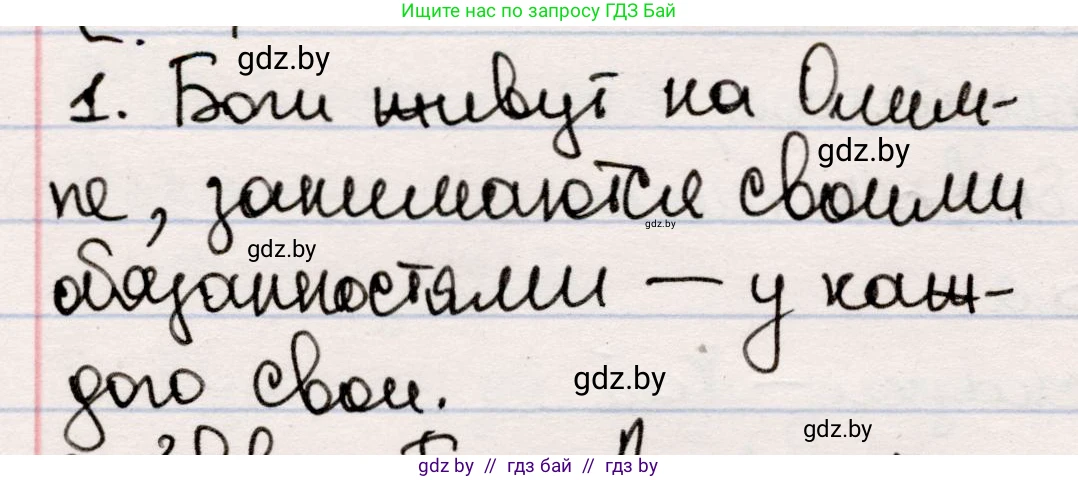 Ищите нас по запросу ГДЗ Бай
gdz.by
1. Боги живут на Олим-
gdz.by
пе, занимаются своими
gdz.by
gdz.by
обязанностями — у каж-
дого свои.
gdz.by
gdz.by
gdz by // гдз бай // гдз by